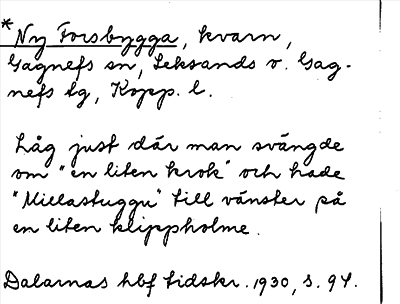 * Ny Forsbygga, kvarn,
Gagnefs sn, Leksands o. Gag-
nefs tg, Kopp. l.
Låg just där man svängde
om "en liten krok" och hade
"Millastuggu" till vänster på
en liten klippholme.
Dalarnas hbf tidskr. 1930, s. 94.